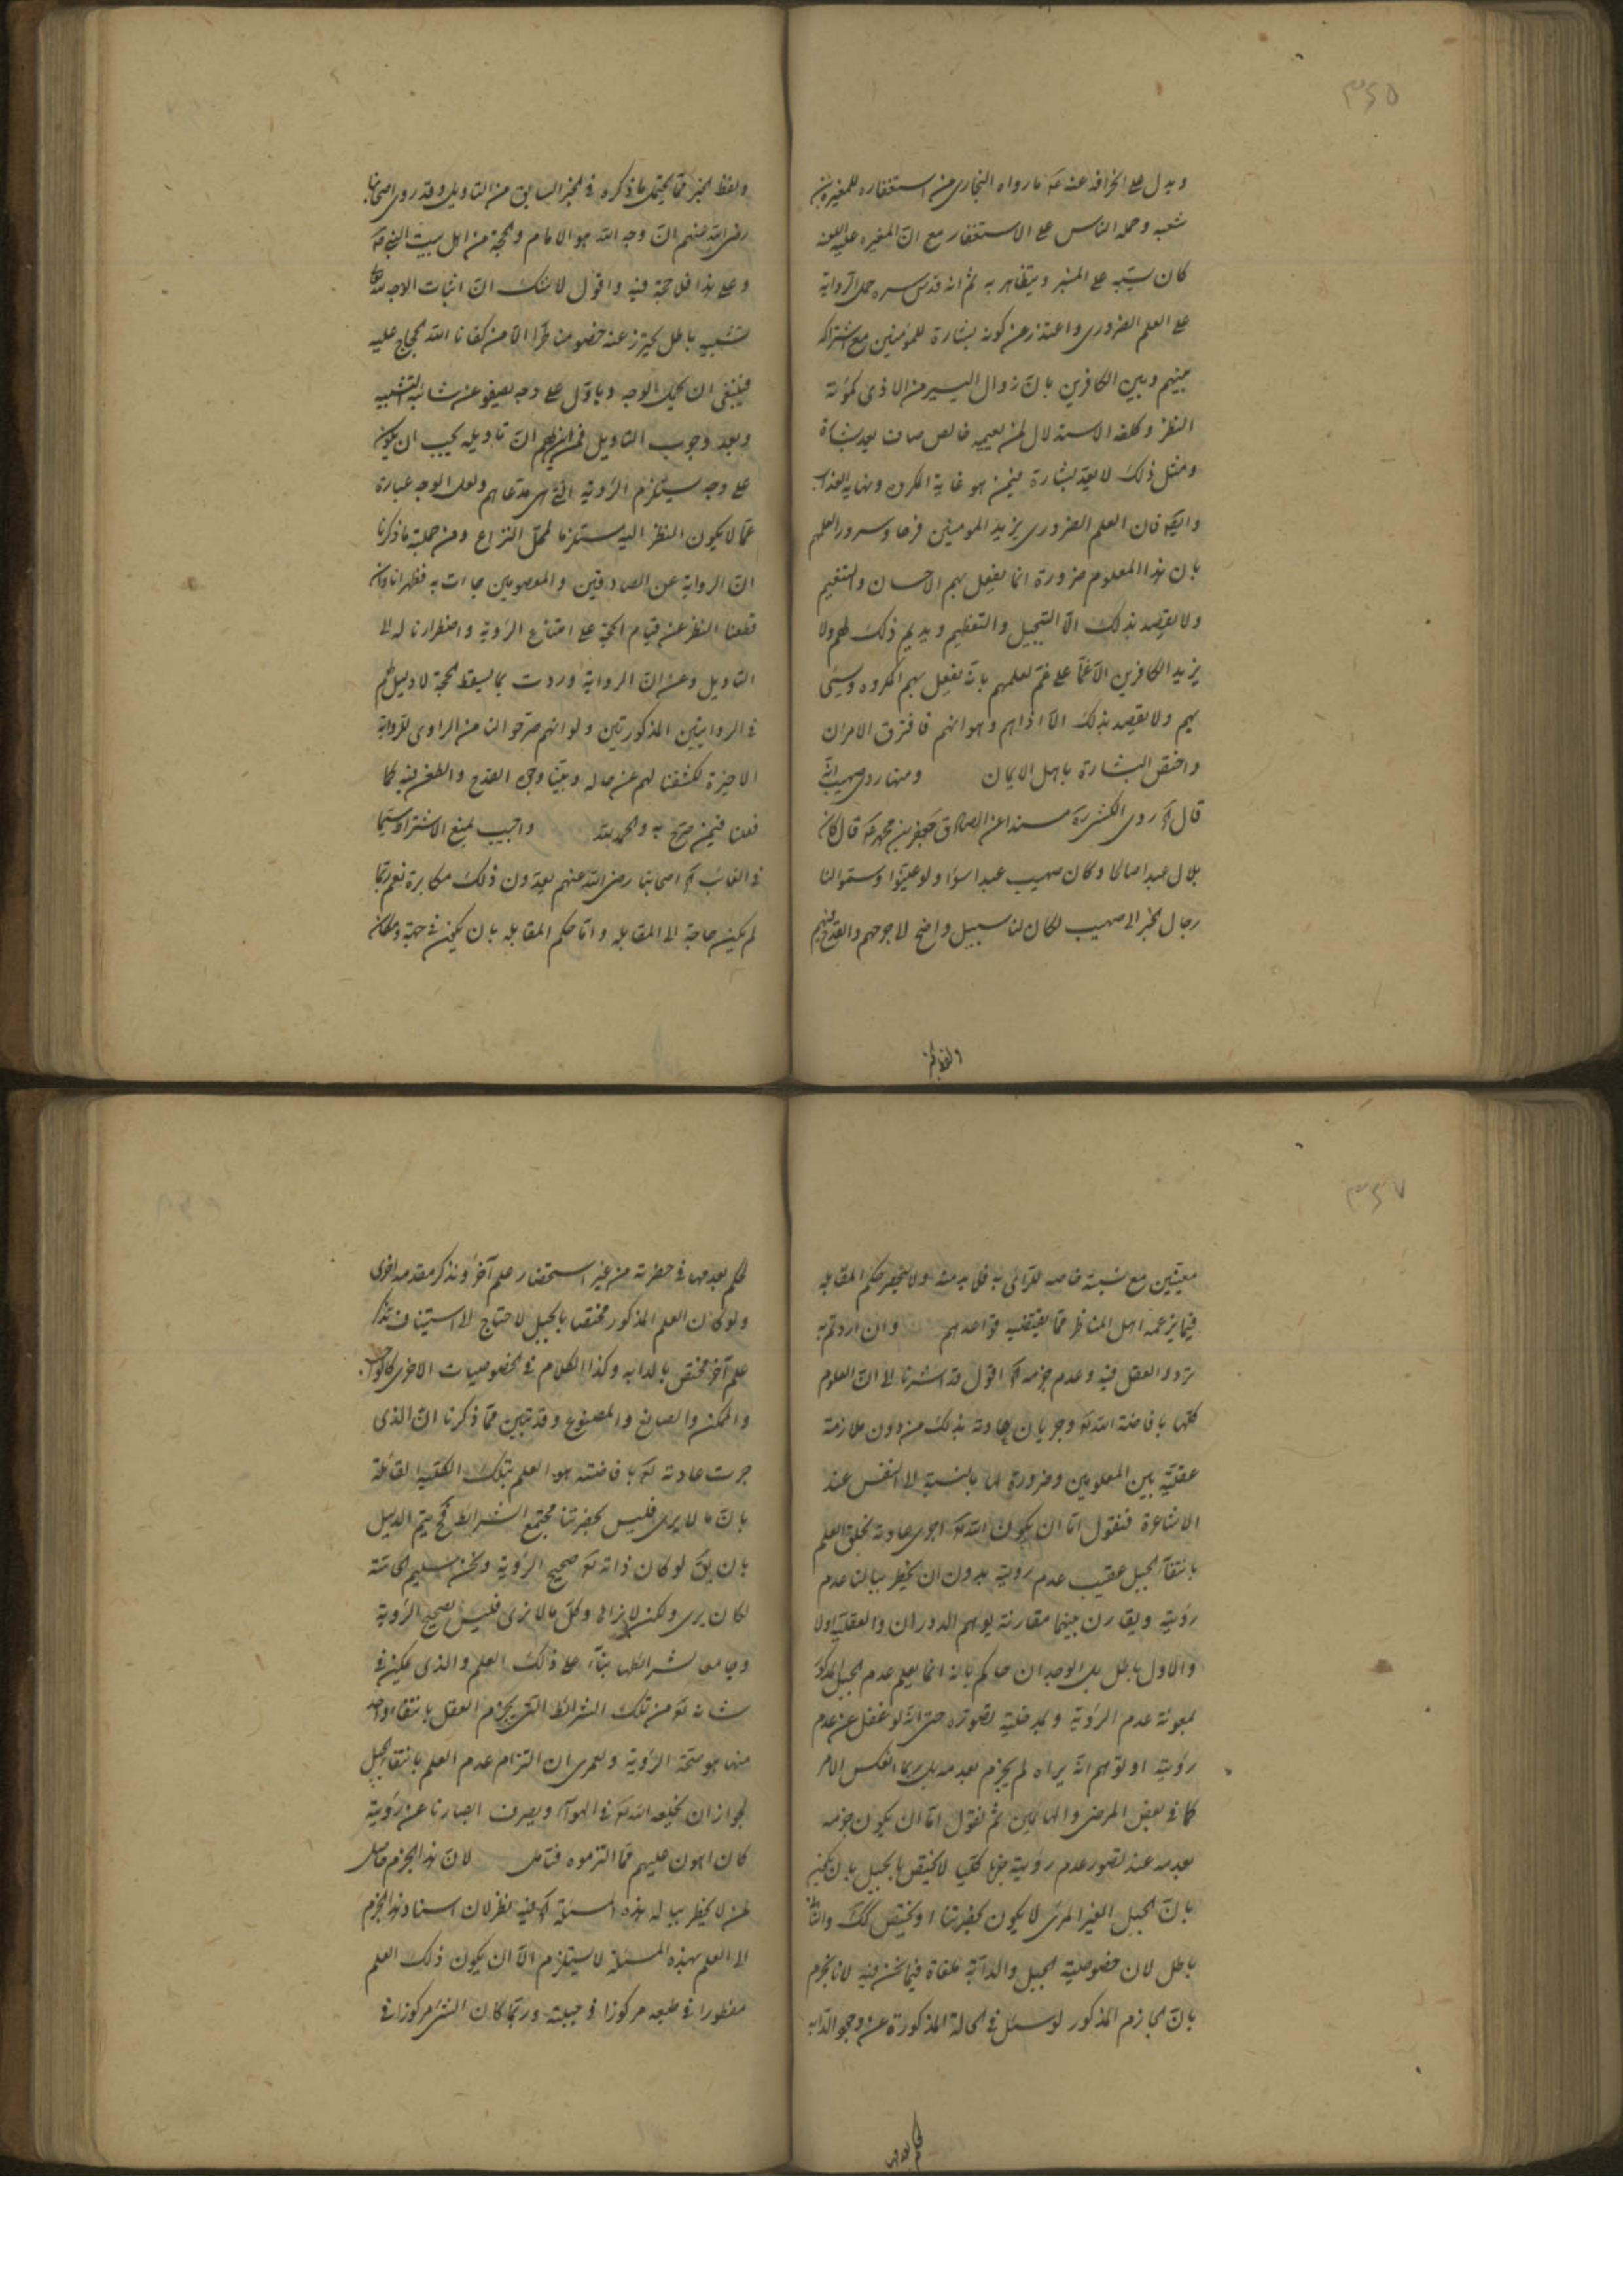 ٣٤٥
ويدل على انحرافه عنه ع مارواه البخارى من استغفاره للمغيرة بن
شعبه وحمله الناس على الاستغفار مع انّ المغيره عليه اللعنه
كان يسبّه على المنبر ويتظاهر به ثم انه قدّس سره حمل الرواية
على العلم الضرورى واعتذر عن كونه بشارة للمؤمنين مع اشتراكه
بينهم وبين الكافرين بانّ زوال اليسير من الاذى كمؤنة
النظر وكلفه الاستدلال لمن نعيمه خالص صاف يعد بشارة
ومثل ذلك لا يعد بشارة فيمن هو غاية المكروه ونهاية العذاب
وايضا فان العلم الضرورى يزيد المومنين فرحا وسرورا لعلمهم
بان هذا المعلوم ضرورة انما يفعل بهم الاحسان والتنعيم
ولا يقصد بذلك الّا التبجيل والتعظيم ويديم ذلك لهم ولا
يزيد الكافرين الّا غمّا على غمّ لعلمهم بانه يفعل بهم المكروه وسيّئ
بهم ولا يقصد بذلك الّا اذاهم وهوانهم فافترق الامران
واختص البشارة باهل الايمان ومنها روى صهيب انّه
قال روى الكشى ره مسندا عن الصادق جعفر بن محمد ع قال كان
بلال عبدا صالحا وكان صهيب عبدا سؤا ولو عيّنوا وسمّوا لنا
رجال الخبر الى صهيب لكان لنا سبيل واضح الى جرحهم والقدح فيهم
ولفظ الخبر
ولفظ الخبر ممّا يحتمل ما ذكره فى الخبر السابق من التاويل وقد روى اصحابنا
رضى الله عنهم انّ وجه الله هو الامام والحجة من اهل بيت النبى ص
وعلى هذا فلا حجة فيه واقول لا شك انّ اثبات الوجه لله تعالى
تشبيه باطل يحترز عنه خصومنا طرّا الّا من كفانا الله الحجاج عليه
فينبغى ان يحمل الوجه ويأوّل على وجه يصفو عن شائبة التشبيه
وبعد وجوب التاويل فمن اين لهم انّ تاويله يجب ان يكون
على وجه يستلزم الرؤية التى هى مدعاهم ولعل الوجه عبارة
عمّا لا يكون النظر اليه مستلزما لمحل النزاع ومن جملة ما ذكرنا
انّ الرواية عن الصادقين والمعصومين جاءت به فظهر انا وان
قطعنا النظر عن قيام الحجة على امتناع الرؤية واضطرارنا له الى
التاويل وعن انّ الرواية وردت بما يسقط الحجة لا دليل لهم
فى الروايتين المذكورتين ولو انهم صرّحوا لنا من الراوى للرواية
الاخيرة لكشفنا لهم عن حاله وبيّنا وجه القدح والطعن فيه كما
فعلنا فيمن صرّح به والحمد لله واجيب بمنع الاشتراط سيّما
فى الغائب اه اصحابنا رضى الله عنهم يعدّون ذلك مكابرة نعم ربّما
لم يكن حاجة الى المقابله وامّا حكم المقابله بان يكون فى جهة ومكان
٣٤٧
معيّنين مع نسبة خاصه للرّائى به فلا بد منه ولا ينحصر حكم المقابله
فيما يزعمه اهل المناظر ممّا يقتضيه قواعدهم وان اردتم به
تردد العقل فيه وعدم جزمه اه اقول قد اشرنا الى انّ العلوم
كلّها بافاضة الله تعالى وجريان عادته بذلك من دون ملازمة
عقليّة بين المعلومين وضرورة لها بالنسبة الى النفس عند
الاشاعرة فنقول امّا ان يكون الله تعالى اجرى عادته بخلق العلم
بانتفاء الجبل عقيب عدم رؤيته بدون ان يخطر ببالنا عدم
رؤيته ويقارن بينهما مقارنة يوهم الدوران والعقليّة اولا
والاول باطل بل الوجدان حاكم بانه انما يعلم عدم الجبل المذكور
بمعونة عدم الرؤية وبمدخلية تصوّره حتى انّه لو غفل عن عدم
رؤيته او توهم انّه يراه لم يجزم بعدمه بل ربما انعكس الامر
كما فى بعض المرضى والهائمين ثم نقول امّا ان يكون جزمه
بعدمه عند تصور عدم رؤيته جزما كليّا لا يختص بالجبل بان يجزم
بانّ الجبل الغير المرئى لا يكون بحضرتنا او يختص بذلك والثانى
باطل لان خصوصية الجبل والدابّة ملغاة فيما نحن فيه لانا نجزم
بانّ الجازم المذكور لو سئل فى الحالة المذكورة عن وجود الدابه
لحكم بعدمها
لحكم بعدمها فى حضرته من غير استحضار علم آخر وتذكر مقدمه اخرى
ولو كان العلم المذكور مختصا بالجبل لاحتاج الى استيناف تذكر
علم آخر مختص بالدابه وكذا الكلام فى الخصوصيات الاخرى كالواجب
والممكن والصانع والمصنوع وقد تبيّن ممّا ذكرنا انّ الذى
جرت عادته تعالى بافاضته هو العلم بتلك الكلية القائلة
بانّ ما لا يرى فليس بحضرتنا مجتمع الشرائط فح يتم الدليل
بان يق لو كان ذاته تعالى صحيح الرؤية ونحن سليم الحاسّة
لكان يرى ولكن لا نراها وكل ما لا نرى فليس بصحيح الرؤية
وجامعا شرائطها بناء على ذلك العلم والذى يمكن فى
شانه تعالى من تلك الشرائط التى يجزم العقل بانتفاء واحد
منها هو صحّة الرؤية ولعمرى ان التزام عدم العلم بانتفاء الجبل
لجواز ان يخلقه الله تعالى فى الهواء ويصرف ابصارنا عن رؤيته
كان اهون عليهم ممّا التزموه فتامل لانّ هذا الجزم حاصل
لمن لا يخطر بباله هذه المسئلة اه فيه نظر لان استناد هذا الجزم
الى العلم بهذه المسئلة لا يستلزم الّا ان يكون ذلك العلم
مفطورا فى طبعه مركوزا فى جبلته وربّما كان الشئ مركوزا فى